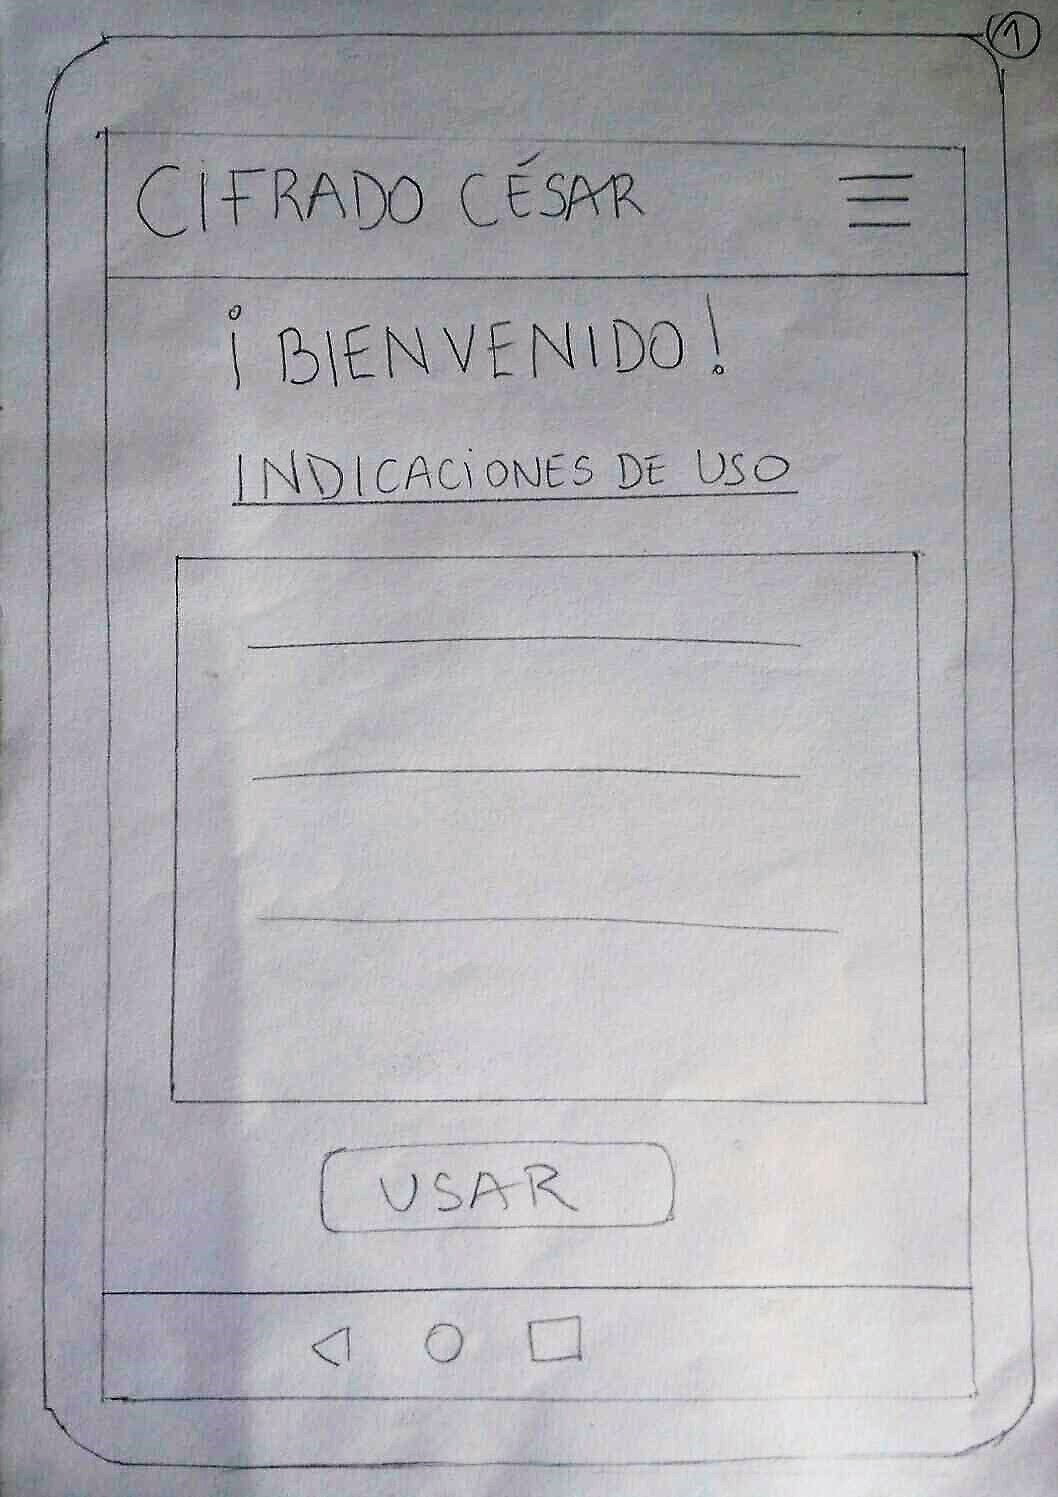 1
CIFRADO CÉSAR
¡BIENVENIDO!
INDICACIONES DE USO
USAR